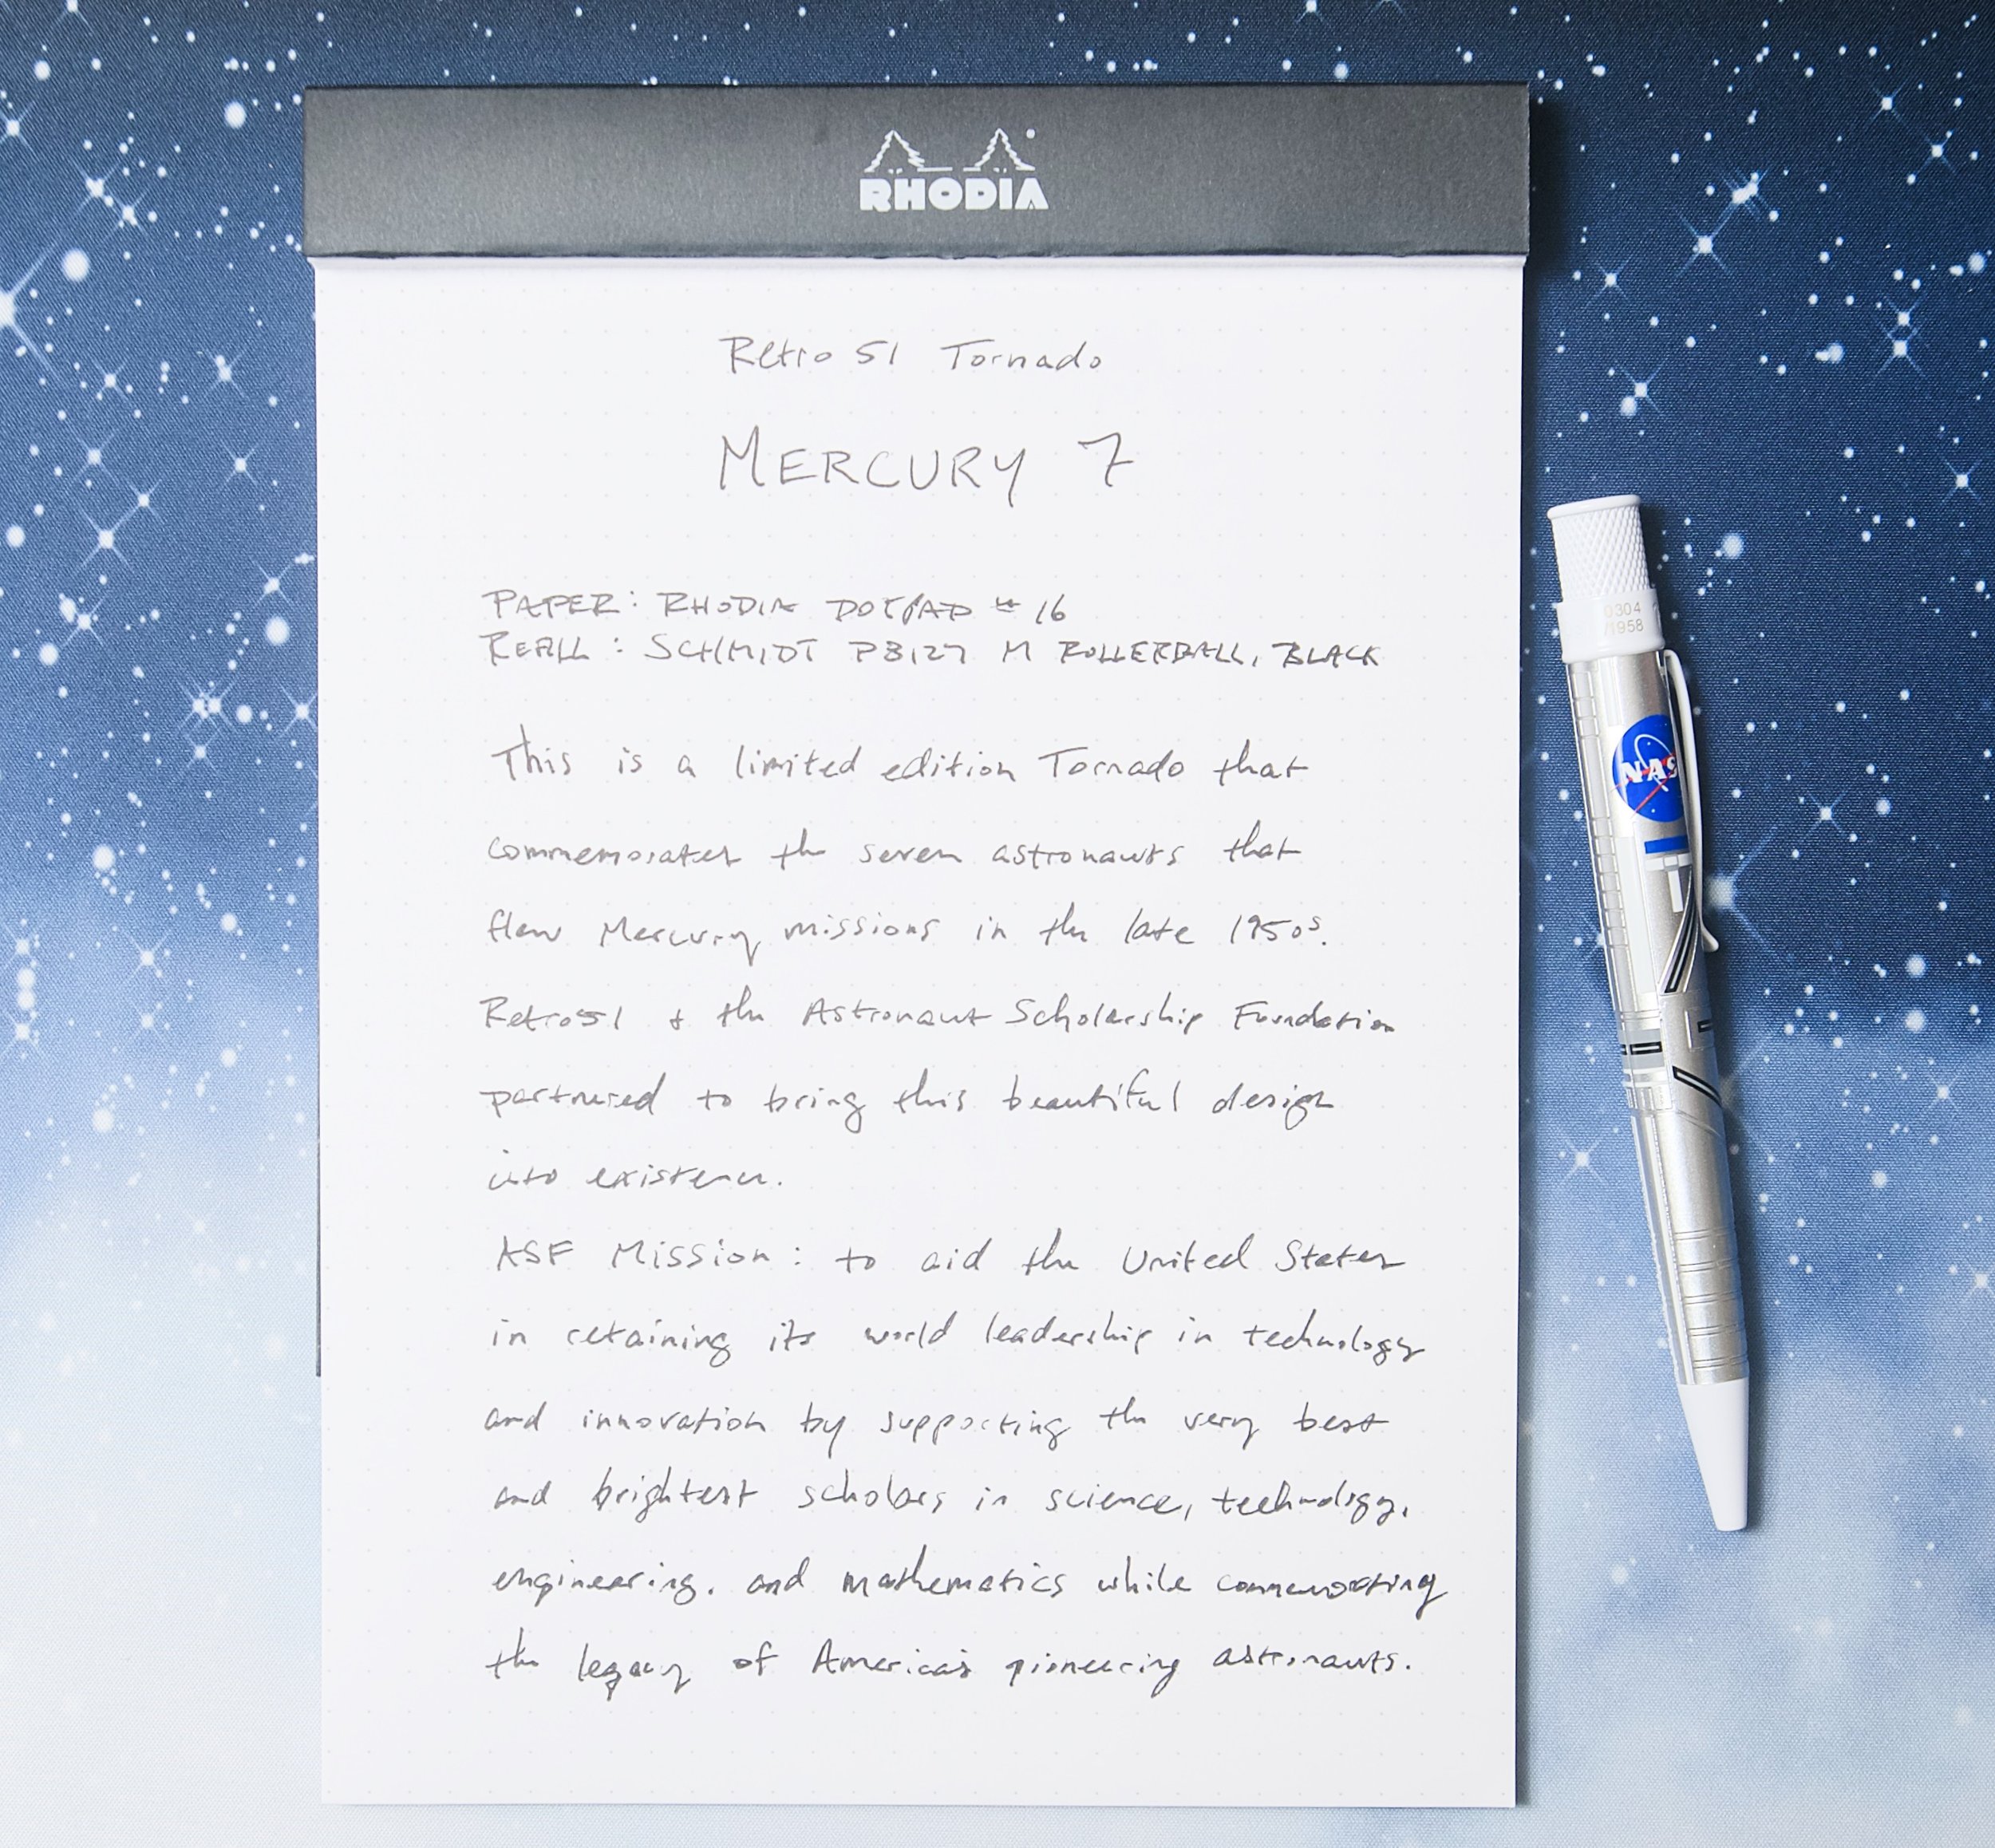 RHODIA
Retro 51 Tornado
MERCURY 7
PAPER: RHODIA DOTPAD # 16
REFILL: SCHMIDT P8127 M ROLLERBALL, BLACK
This is a limited edition Tornado that
commemorates the seven astronauts that
flew Mercury missions in the late 1950s.
Retro51 & the Astronaut Scholarship Foundation
partnered to bring this beautiful design
into existence.
ASF Mission: to aid the United States
in retaining its world leadership in technology
and innovation by supporting the very best
and brightest scholars in science, technology,
engineering, and mathematics while commemorating
the legacy of America's pioneering astronauts.
0304
/1958
NAS